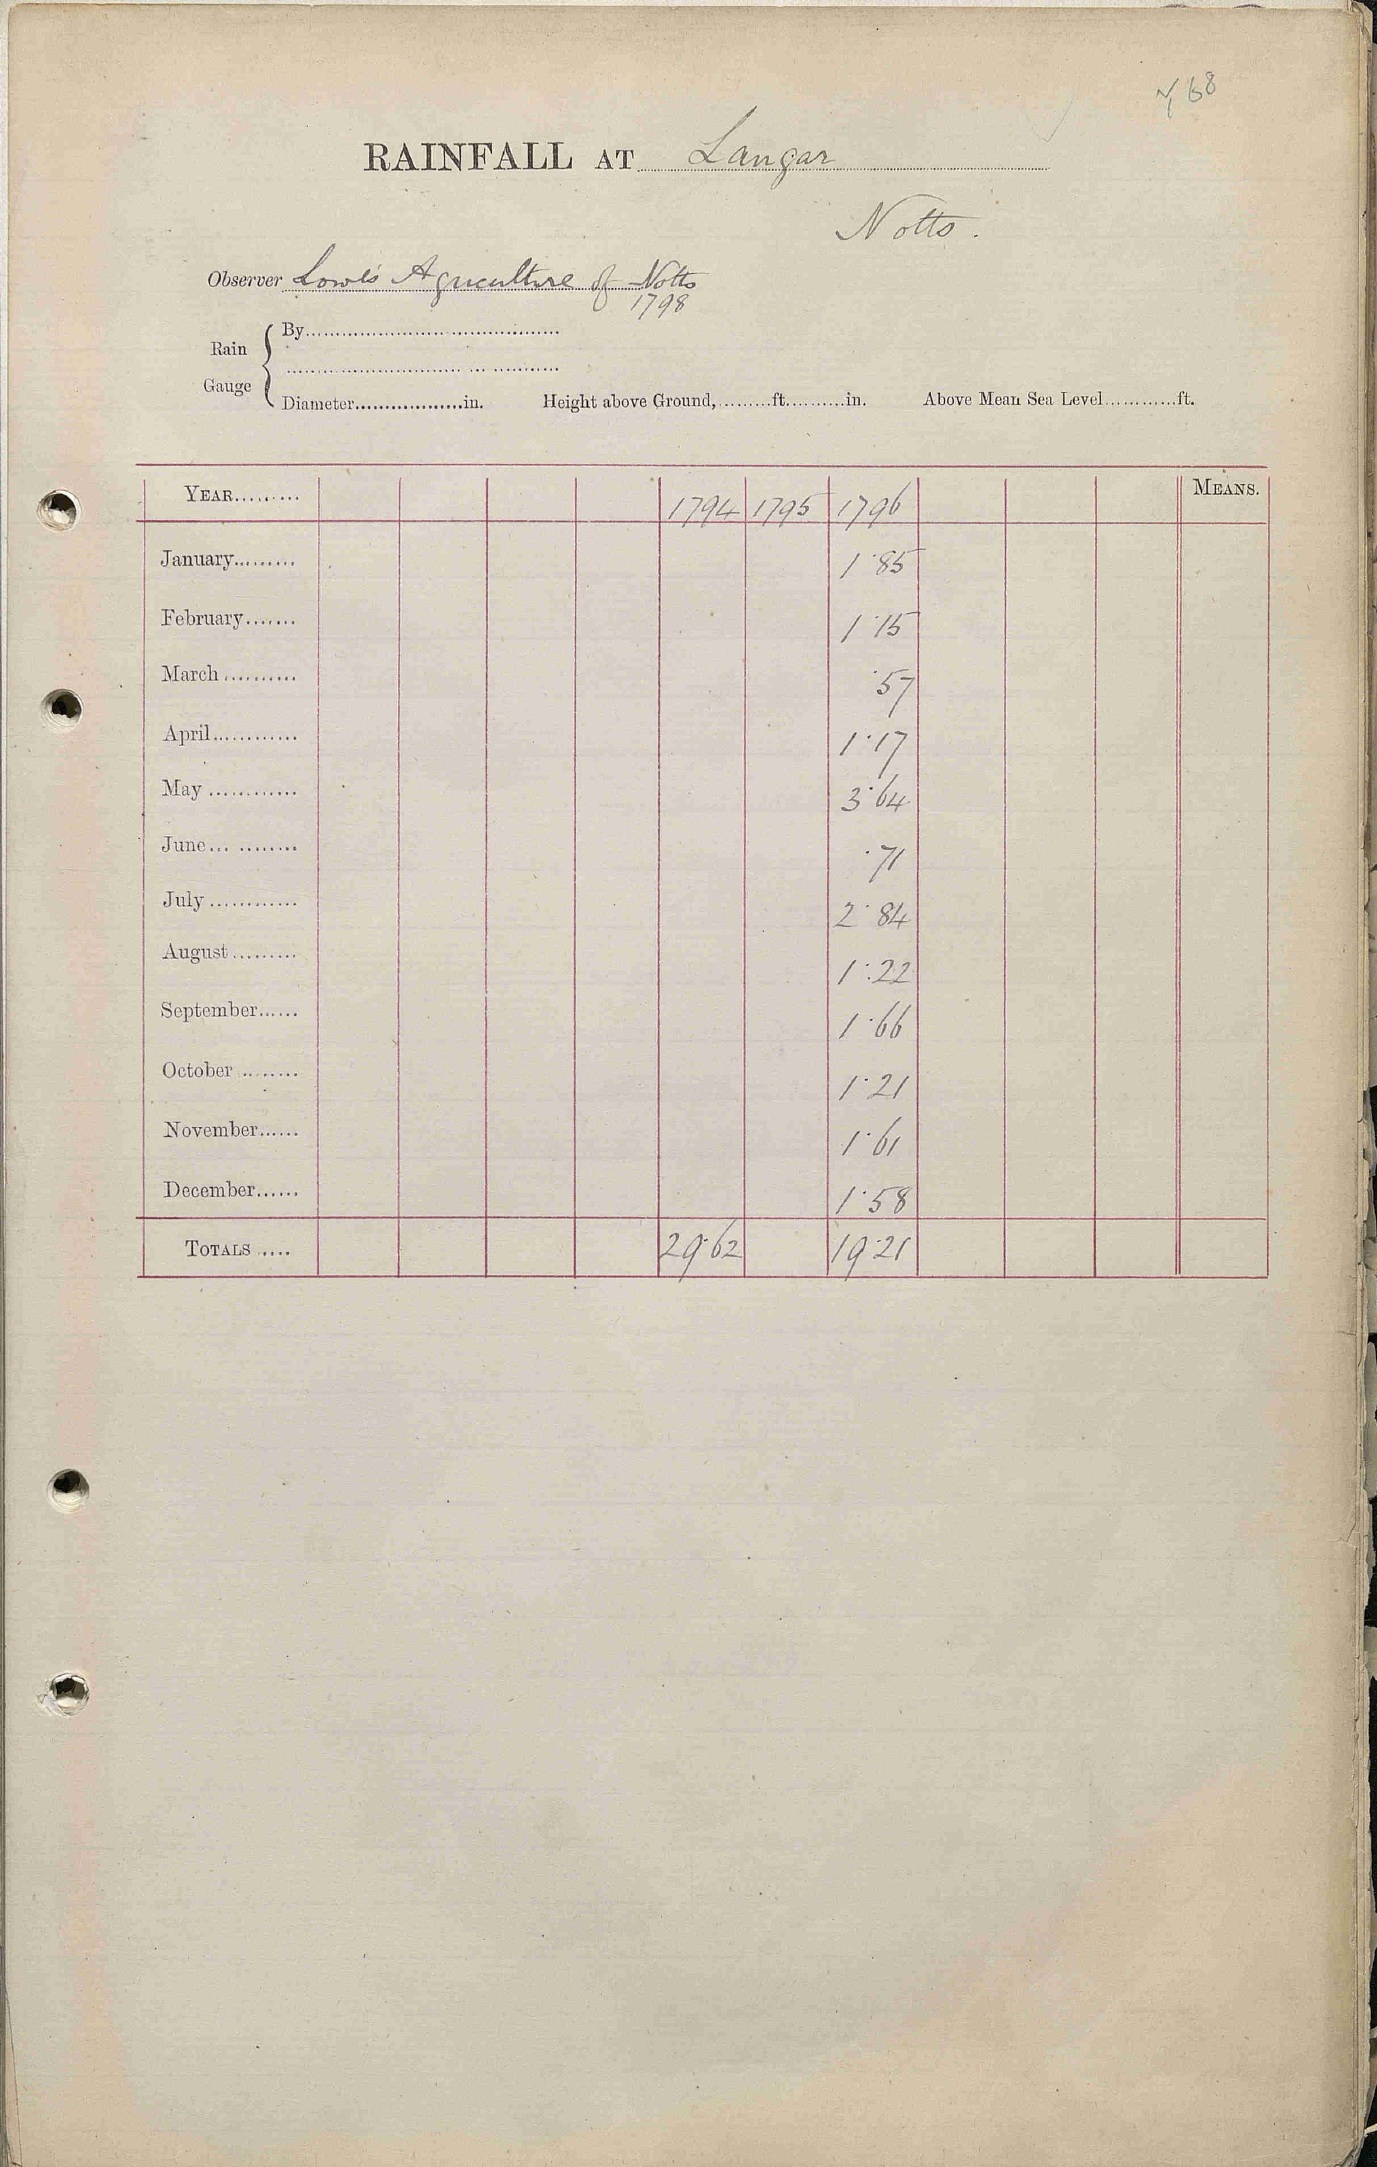 68
RAINFALL AT Langar
Notts.
Observer Lowe's Agriculture of Notts
1798
Rain Gauge
By
Diameter in. Height above Ground, ft. in. Above Mean Sea Level ft.
YEAR 1794 1795 1796 MEANS.
January 1.85
February 1.15
March .57
April 1.17
May 3.64
June .71
July 2.84
August 1.22
September 1.66
October 1.21
November 1.61
December 1.58
TOTALS 29.62 19.21